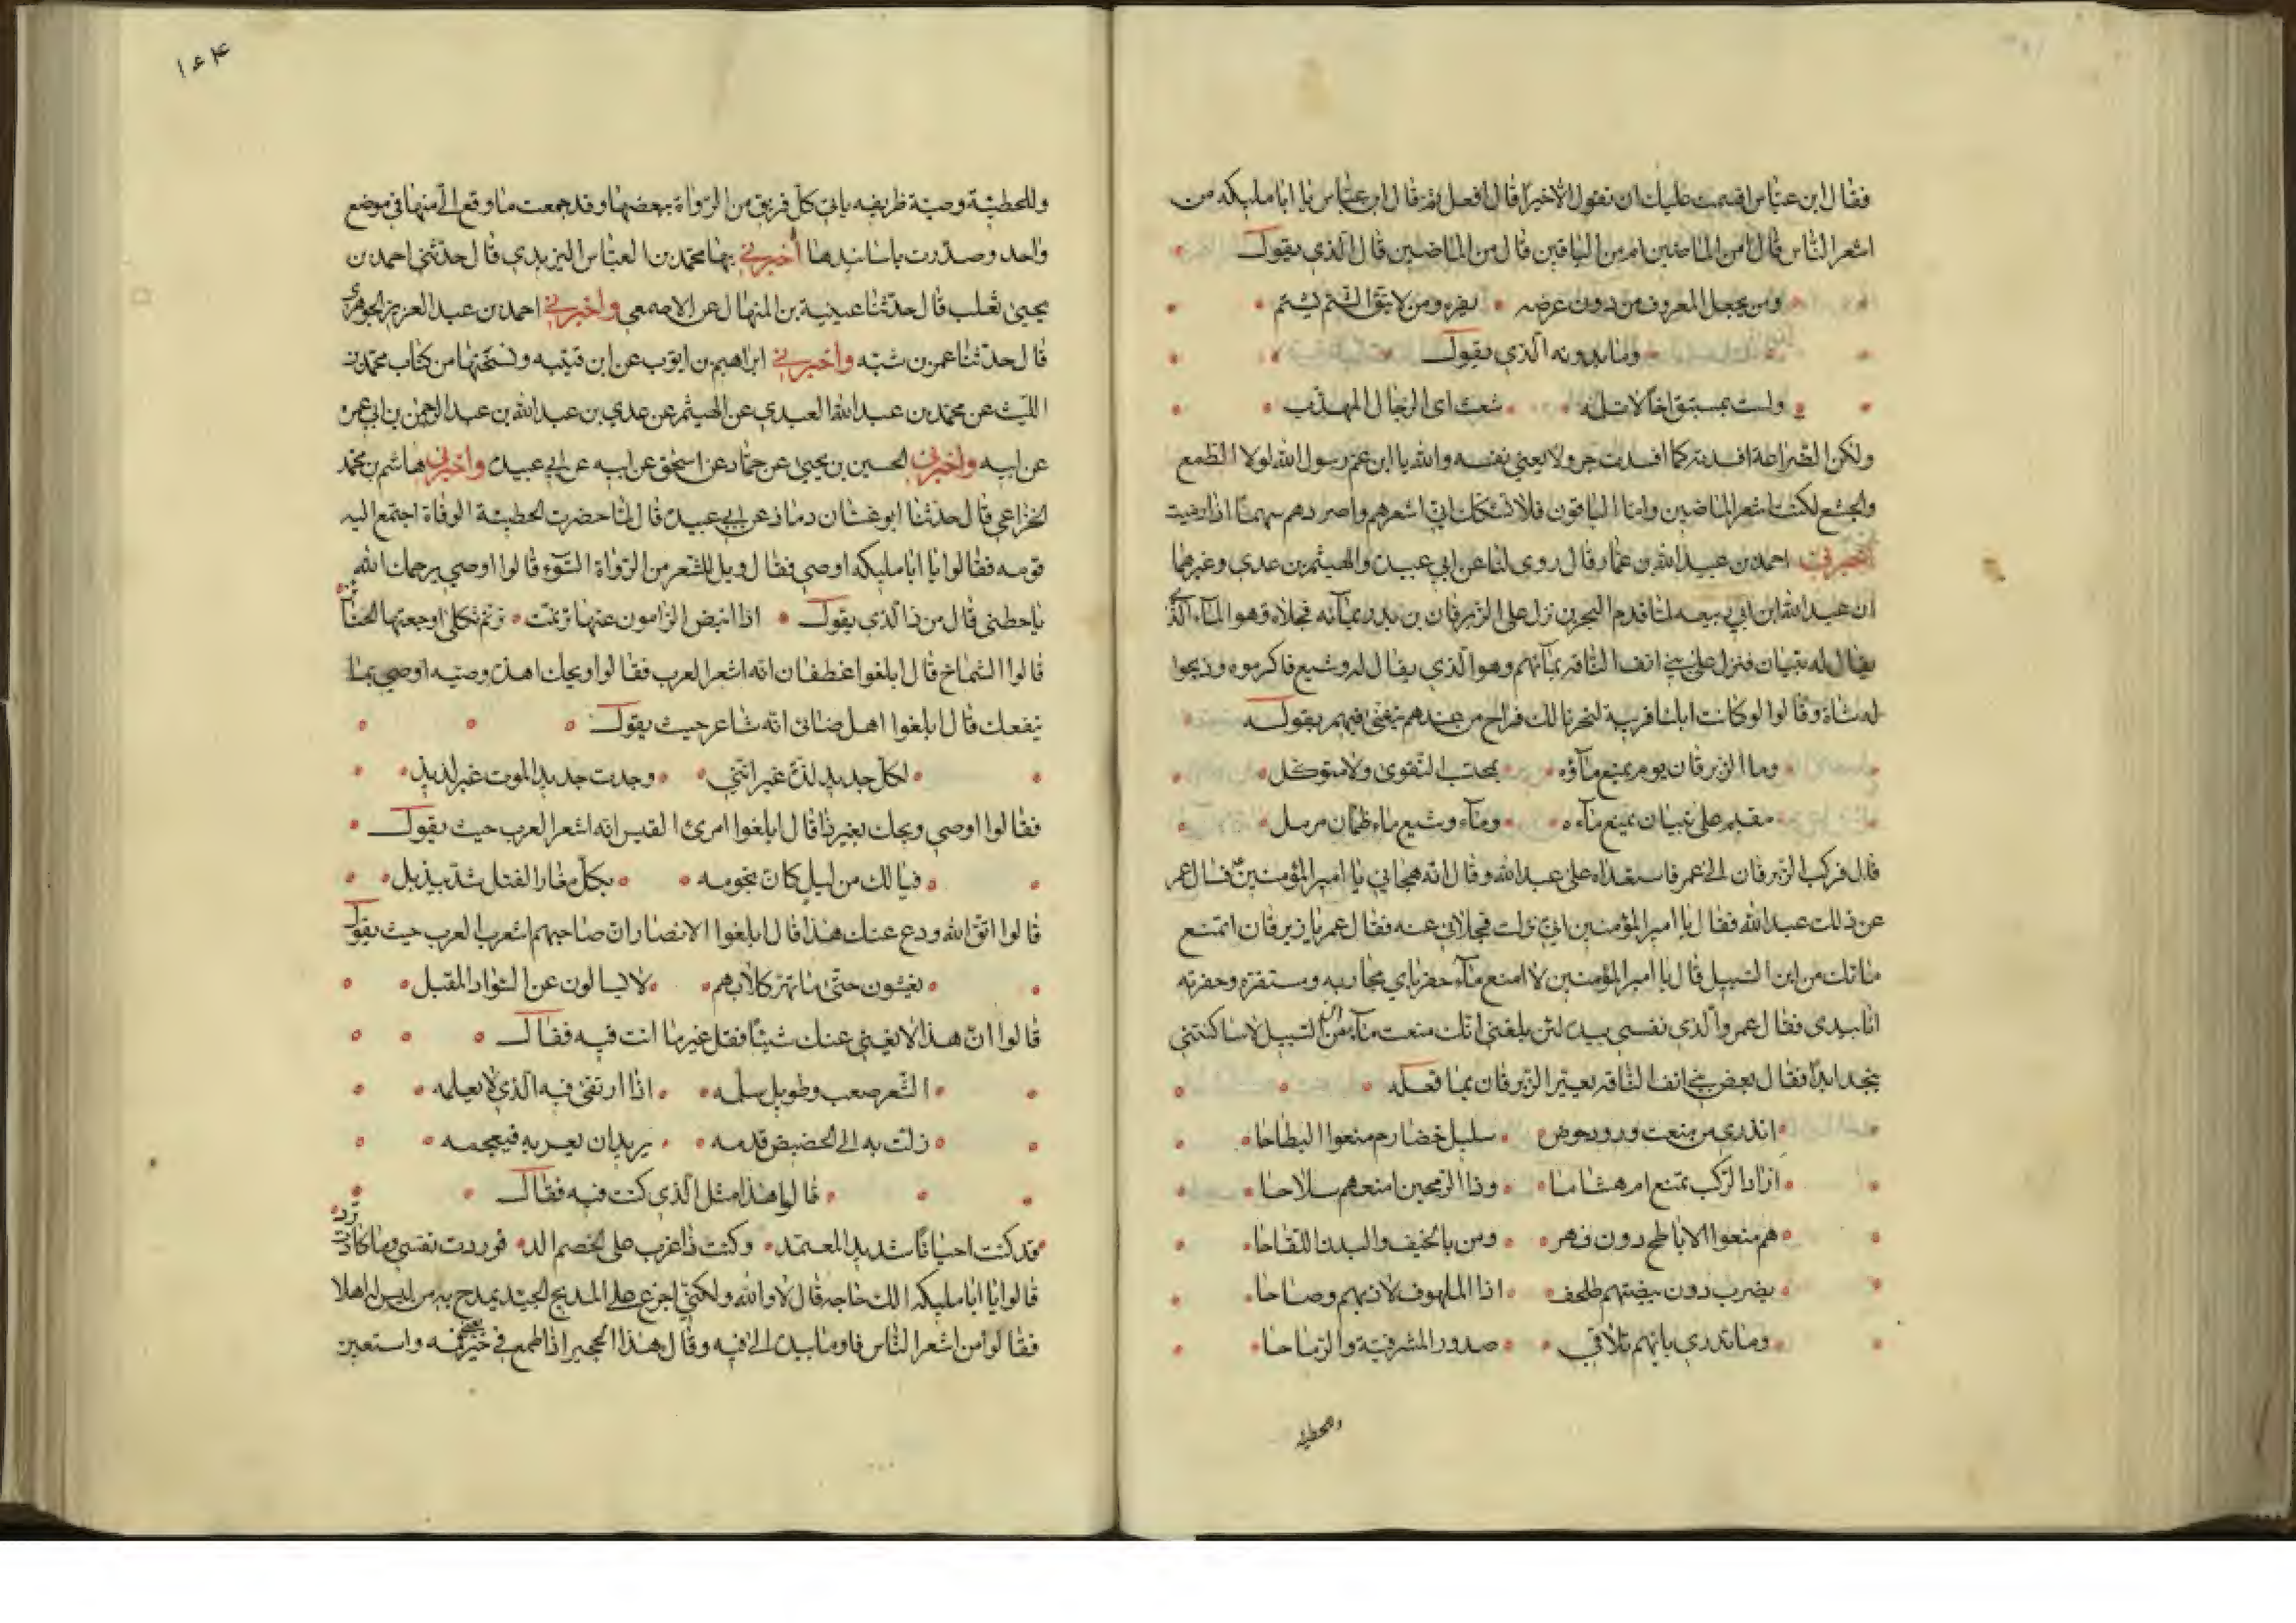 فقال ابن عباس اقسمت عليك ان تقول الا خيرا قال افعل ثم قال ابن عباس يا ابا مليكه من
اشعر الناس قال امن الماضين ام من الباقين قال من الماضين قال الذي يقول
ومن يجعل المعروف من دون عرضه يفره ومن لا يتق الشتم يشتم
وما بدونه الذي يقول
ولست بمستبق اخا لا تلمه على شعث اي الرجال المهذب
ولكن الضراعة افسدته كما افسدت جرولا يعني نفسه والله يا ابن عم رسول الله لولا الطمع
والجشع لكنت اشعر الماضين واما الباقون فلا تشكك اني اشعرهم واصردهم سهما اذا رميت
اخبرني احمد بن عبيد الله بن عمار قال روى لنا عن ابي عبيدة والهيثم بن عدي وغيرهما
ان عبد الله ابن ابي ربيعه لما قدم البحرين نزل على الزبرقان بن بدر بمآئه فحلاه وهو المآء الذي
يقال له بنيان فنزل على بني انف الناقه بمآئهم وهو الذي يقال له وشيع فاكرموه وذبحوا
له شاة وقالوا لو كانت ابلنا قريبة لنحرنا لك فراح من عندهم يتغنى فيهم بقوله
وما الزبرقان يوم يمنع مآؤه بمحتسب التقوى ولا متوكل
مقيم على بنيان يمنع مآءه ومآء وشيع ماء ظمآن مرمل
قال فركب الزبرقان الى عمر فاستعداه على عبد الله وقال انه هجاني يا امير المؤمنين فسال عمر
عن ذلك عبد الله فقال يا امير المؤمنين اني نزلت فحلاني عنه فقال عمر يا زبرقان اتمنع
ماءك من ابن السبيل قال يا امير المؤمنين لا امنع مآء حفر اباي مجاريه ومستقره وحفرته
انا بيدي فقال عمر والذي نفسي بيده لئن بلغني انك منعت مآءك من ابن السبيل لا ساكنتني
بنجد ابدا فقال بعض بني انف الناقه يعير الزبرقان بما فعله
اتدري من منعت ورود حوض سليل خضارم منعوا البطاحا
ازاد الركب تمنع ام هشاما وذا الرمحين امنعهم سلاحا
هم منعوا الاباطح دون فهر ومن بالخيف والبدن اللقاحا
بضرب دون بيضتهم طلحف اذا الملهوف لاذ بهم وصاحا
وما تدري بايهم تلاقي صدور المشرفية والرماحا
وللحطيئة
١٥٤
وللحطيئة وصية ظريفه ياتي كل فريق من الرواة ببعضها وقد جمعت ما وقع الي منها في موضع
واحد وصدرت باسانيدها أخبرني بها محمد بن العباس اليزيدي قال حدثني احمد بن
يحيى ثعلب قال حدثنا عيينة بن المنهال عن الاصمعي واخبرني احمد بن عبد العزيز الجوهري
قال حدثنا عمر بن شبه واخبرني ابراهيم بن ايوب عن ابن قتيبه ونسختها من كتاب محمد بن
الليث عن محمد بن عبد الله العبدي عن الهيثم بن عدي بن عبد الله بن عبد الرحمن بن ابي عمرة
عن ابيه واخبرني الحسين بن يحيى عن حماد عن اسحق عن ابيه عن ابي عبيدة واخبرني هاشم بن محمد
الخزاعي قال حدثنا ابو غسان دماذ عن ابي عبيدة قال لما حضرت الحطيئة الوفاة اجتمع اليه
قومه فقالوا يا ابا مليكه اوصي فقال ويل للشعر من الرواة السوء قالوا اوصي يرحمك الله
يا حطئ قال من ذا الذي يقول اذا انبض الرامون عنها ترنمت ترنم ثكلى اوجعتها الجنائز
قالوا الشماخ قال ابلغوا غطفان انه اشعر العرب فقالوا ويحك اهذه وصيه اوصي بما
ينفعك قال ابلغوا اهل ضابئ انه شاعر حيث يقول
لكل جديد لذة غير انني وجدت جديد الموت غير لذيذ
فقالوا اوصي ويحك بغير ذا قال ابلغوا امرئ القيس انه اشعر العرب حيث يقول
فيا لك من ليل كان نجومه بكل مغار الفتل شدت بيذبل
قالوا اتق الله ودع عنك هذا قال ابلغوا الانصار ان صاحبهم اشعر العرب حيث يقول
يغشون حتى ما تهر كلابهم لا يسالون عن السواد المقبل
قالوا ان هذا لا يغني عنك شيئا فقل غير ما انت فيه فقال
الشعر صعب وطويل سلمه اذا ارتقى فيه الذي لا يعلمه
زلت به الى الحضيض قدمه يريد ان يعربه فيعجمه
قالوا هذا مثل الذي كنت فيه فقال
قد كنت احيانا شديد المعتمد وكنت ذا غرب على الخصم الد فوردت نفسي وما كادت ترد
قالوا يا ابا مليكه الك حاجه قال لا والله ولكني اجزع على المديح الجيد يمدح به من ليس له اهلا
فقالوا من اشعر الناس فاومأ بيده الى فيه وقال هذا الحجير اذا طمع في خير يعني فمه واستعبر